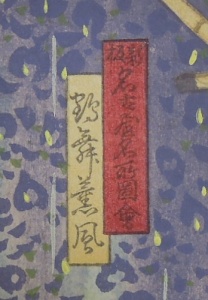 新板
名古屋名所圖會
鶴舞薫風